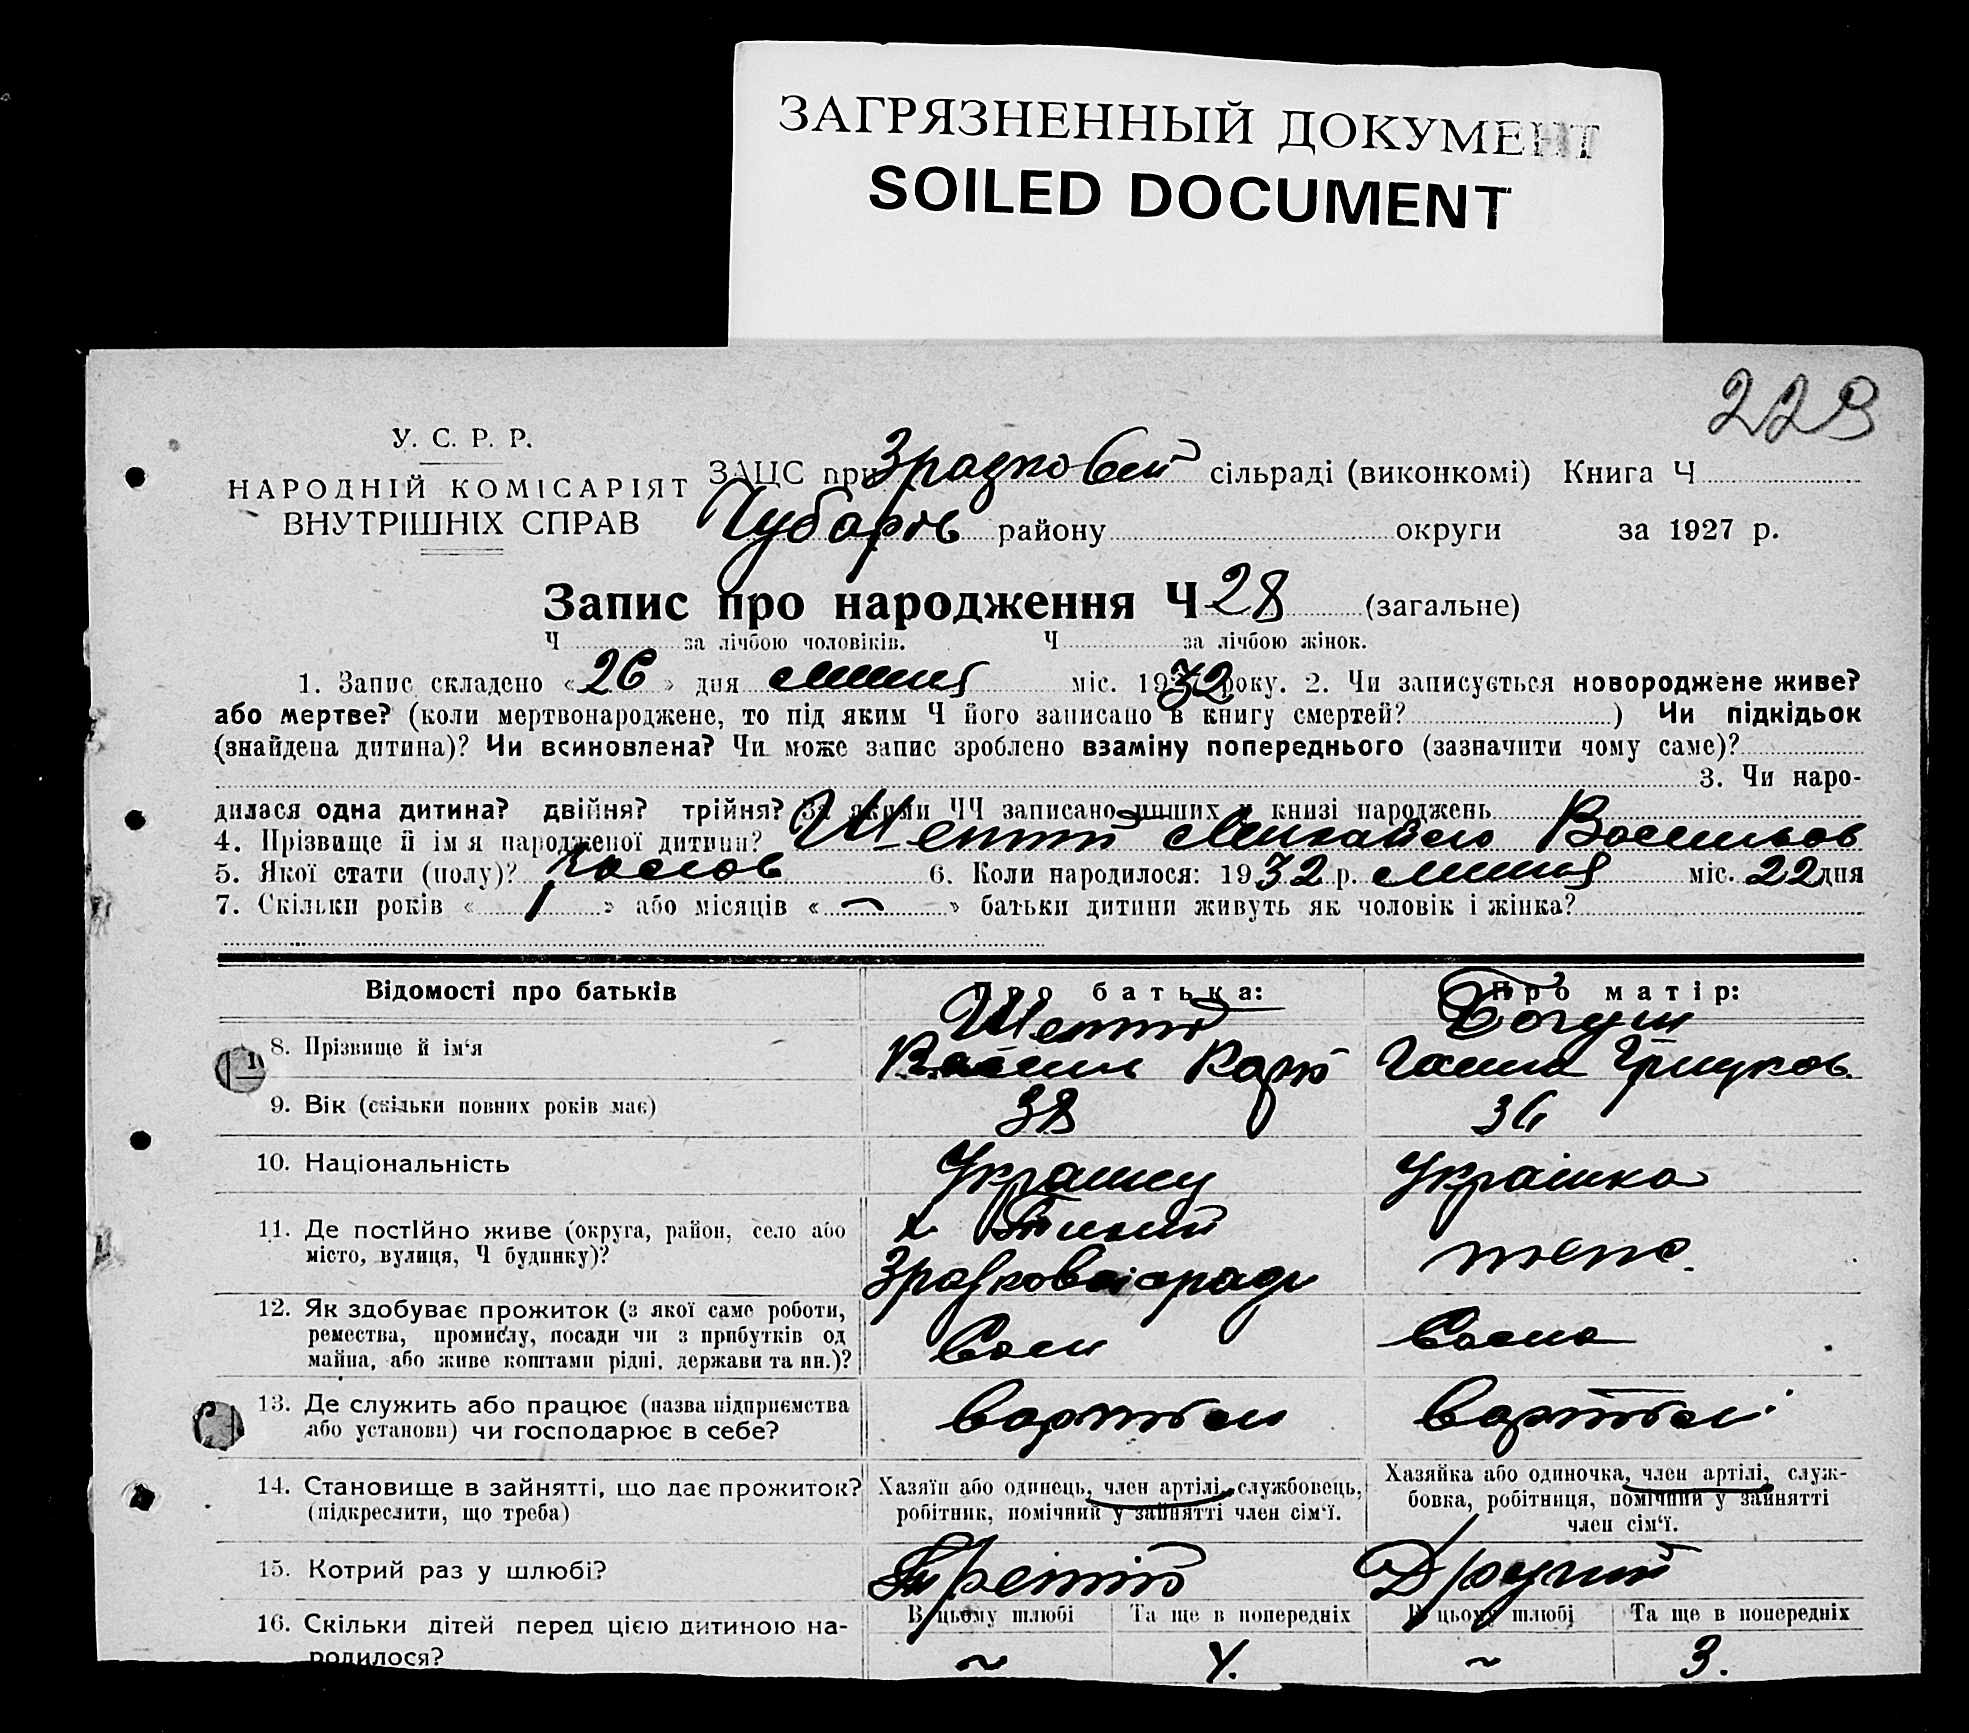 ЗАГРЯЗНЕННЫЙ ДОКУМЕНТ
SOILED DOCUMENT
228
У. С. Р. Р.
НАРОДНІЙ КОМІСАРІЯТ
ВНУТРІШНІХ СПРАВ
ЗАЦС при Зразковей сільраді (виконкомі) Книга Ч
Чубарів району округи за 1927 р.
Запис про народження Ч 28 (загальне)
Ч за лічбою чоловіків. Ч за лічбою жінок.
1. Запис складено «26» дня липня міс. 1932 року. 2. Чи записується новороджене живе?
або мертве? (коли мертвонароджене, то під яким Ч його записано в книгу смертей?) Чи підкідьок
(знайдена дитина)? Чи всиновлена? Чи може запис зроблено взаміну попереднього (зазначити чому саме)?
3. Чи наро-
дилася одна дитина? двійня? трійня? За якими ЧЧ записано инших у книзі народжень
4. Прізвище й ім я народженої дитини? Михайло Васильов
5. Якої стати (полу)? 6. Коли народилося: 1932 р. липня міс. 22 дня
7. Скільки років «1» або місяців «–» батьки дитини живуть як чоловік і жінка?
Відомості про батьків
Про батька:
Про матір:
8. Прізвище й ім‘я
Василь Карп
Богуш
Ганна Грицков.
9. Вік (скільки повних років має)
38
36
10. Національність
Українец
Українка
11. Де постійно живе (округа, район, село або
місто, вулиця, Ч будинку)?
х.
Зразковоі сради
тепс.
12. Як здобуває прожиток (з якої саме роботи,
ремества, промислу, посади чи з прибутків од
майна, або живе коштами рідні, держави та ин.)?
13. Де служить або працює (назва підприємства
або установи) чи господарює в себе?
вартілі
вартілі
14. Становище в зайнятті, що дає прожиток?
(підкреслити, що треба)
Хазяїн або одинець, член артілі, службовець,
робітник, помічний у зайнятті член сім‘ї.
Хазяйка або одиночка, член артілі, служ-
бовка, робітниця, помічний у зайнятті
член сім‘ї.
15. Котрий раз у шлюбі?
Третій
Другий
16. Скільки дітей перед цією дитиною на-
родилося?
В цьому шлюбі
Та ще в попередніх
В цьому шлюбі
Та ще в попередніх
~
4.
~
3.